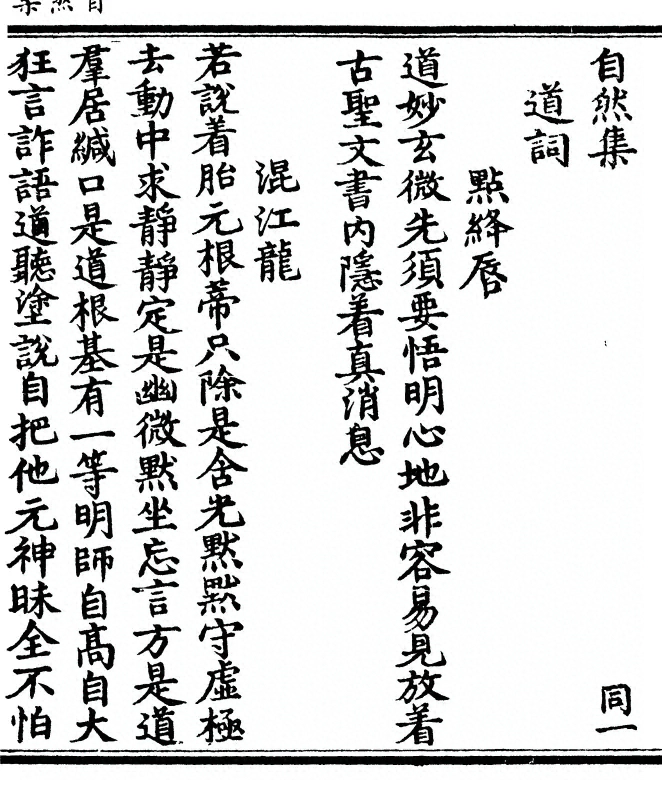 自然集　同一
道詞
點絳唇
道妙玄微先須要悟明心地非容易見放着
古聖文書内隱着真消息
混江龍
若說着胎元根蒂只除是含光默默守虛極
去動中求靜靜定是幽微默坐忘言方是道
羣居緘口是道根基有一等明師自髙自大
狂言詐語道聽塗說自把他元神昧全不怕